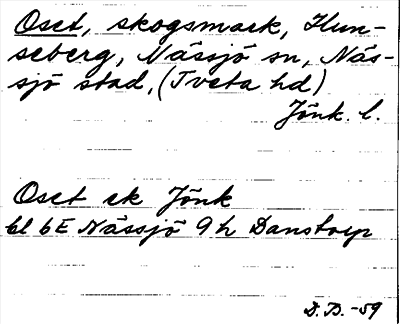 Oset, skogsmark, Hun-
seberg, Nässjö sn, Näs-
sjö stad, (Tveta hd)
Jönk. l.
Oset ek Jönk
bl 6E Nässjö 9h Danstorp
D.B. -59